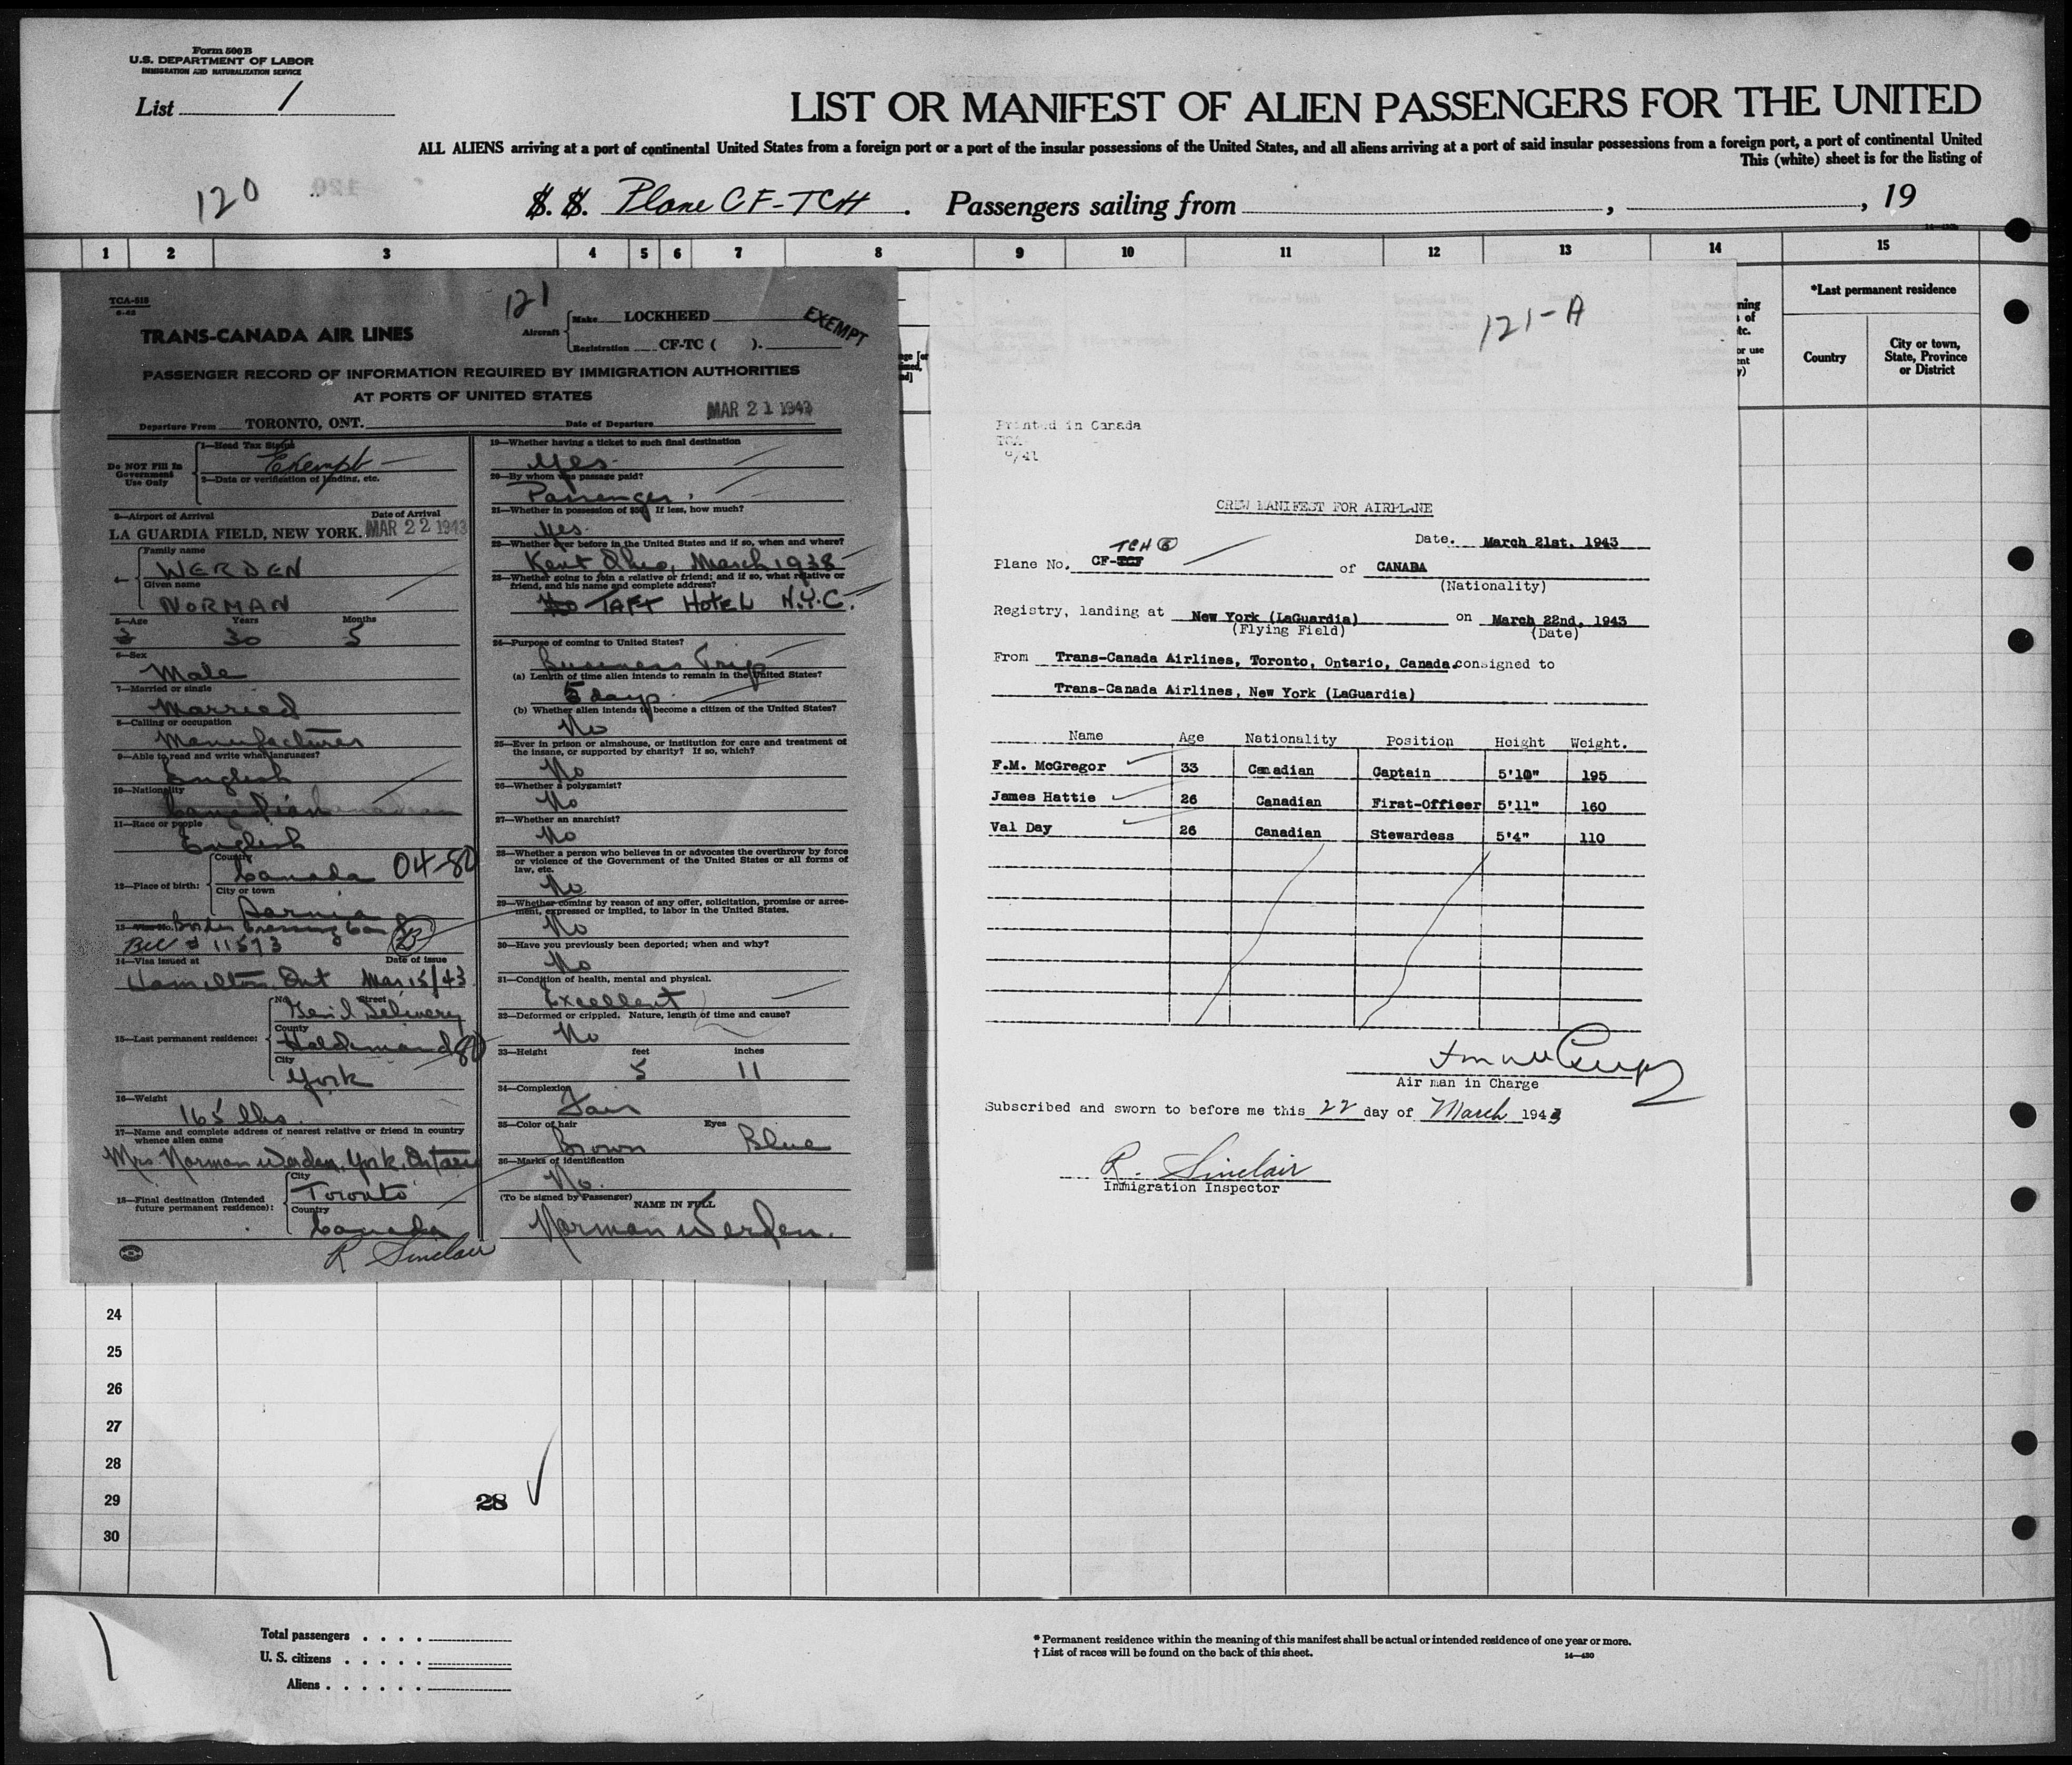 Form 500 B
U.S. DEPARTMENT OF LABOR
IMMIGRATION AND NATURALIZATION SERVICE
List 1
LIST OR MANIFEST OF ALIEN PASSENGERS FOR THE UNITED
ALL ALIENS arriving at a port of continental United States from a foreign port or a port of the insular possessions of the United States, and all aliens arriving at a port of said insular possessions from a foreign port, a port of continental United
This (white) sheet is for the listing of
120
S. S. Plane CF-TCH . Passengers sailing from , , 19
1 2 3 4 5 6 7 8 9 10 11 12 13 14 15
*Last permanent residence
Country
City or town, State, Province or District
TCA-515
6-42
121
TRANS-CANADA AIR LINES
Aircraft
Make LOCKHEED
Registration CF-TC ( ).
EXEMPT
PASSENGER RECORD OF INFORMATION REQUIRED BY IMMIGRATION AUTHORITIES
AT PORTS OF UNITED STATES
Departure From TORONTO, ONT.
Date of Departure MAR 21 1943
Do NOT Fill In Government Use Only
1—Head Tax Status
Exempt
2—Data or verification of landing, etc.
3—Airport of Arrival Date of Arrival
LA GUARDIA FIELD, NEW YORK. MAR 22 1943
4— Family name
WERDEN
Given name
NORMAN
5—Age Years Months
3 30 5
6—Sex
Male
7—Married or single
Married
8—Calling or occupation
Manufacturer
9—Able to read and write what languages?
English
10—Nationality
Canadian
11—Race or people
English
12—Place of birth: Country
Canada 04-80
City or town
Sarnia
13—Visa No. Border Crossing Card
BCC # 11573
14—Visa issued at Date of issue
Hamilton Ont Mar 15/43
15—Last permanent residence:
No. Street
Gen'l Delivery
County
Haldimand 80
City
York
16—Weight
165 lbs.
17—Name and complete address of nearest relative or friend in country whence alien came
Mrs. Norman Werden, York, Ontario
18—Final destination (Intended future permanent residence):
City
Toronto
Country
Canada
R Sinclair
19—Whether having a ticket to such final destination
Yes.
20—By whom was passage paid?
Passenger.
21—Whether in possession of $50? If less, how much?
Yes.
22—Whether ever before in the United States and if so, when and where?
Kent Ohio, March 1938
23—Whether going to join a relative or friend; and if so, what relative or friend, and his name and complete address?
No TAFT HOTEL N.Y.C.
24—Purpose of coming to United States?
Business Trip
(a) Length of time alien intends to remain in the United States?
5 days.
(b) Whether alien intends to become a citizen of the United States?
No
25—Ever in prison or almshouse, or institution for care and treatment of the insane, or supported by charity? If so, which?
No
26—Whether a polygamist?
No
27—Whether an anarchist?
No
28—Whether a person who believes in or advocates the overthrow by force or violence of the Government of the United States or all forms of law, etc.
No
29—Whether coming by reason of any offer, solicitation, promise or agreement, expressed or implied, to labor in the United States.
No
30—Have you previously been deported; when and why?
No
31—Condition of health, mental and physical.
Excellent
32—Deformed or crippled. Nature, length of time and cause?
No
33—Height feet inches
5 11
34—Complexion
Fair
35—Color of hair Eyes
Brown Blue
36—Marks of identification
No.
(To be signed by Passenger) NAME IN FULL
Norman Werden.
121-A
Printed in Canada
CREW MANIFEST FOR AIRPLANE
Date. March 21st, 1943
TCH
Plane No. CF-TCF of CANADA
(Nationality)
Registry, landing at New York (LaGuardia) on March 22nd, 1943
(Flying Field) (Date)
From Trans-Canada Airlines, Toronto, Ontario, Canada. consigned to
Trans-Canada Airlines, New York (LaGuardia)
Name Age Nationality Position Height Weight.
F.M. McGregor 33 Canadian Captain 5'10" 195
James Hattie 26 Canadian First-Officer 5'11" 160
Val Day 26 Canadian Stewardess 5'4" 110
Air man in Charge
Subscribed and sworn to before me this 22 day of March 1943
R. Sinclair
Immigration Inspector
24
25
26
27
28
29
28
30
Total passengers . . . .
U. S. citizens . . . . .
Aliens . . . . . .
* Permanent residence within the meaning of this manifest shall be actual or intended residence of one year or more.
† List of races will be found on the back of this sheet.
14—430